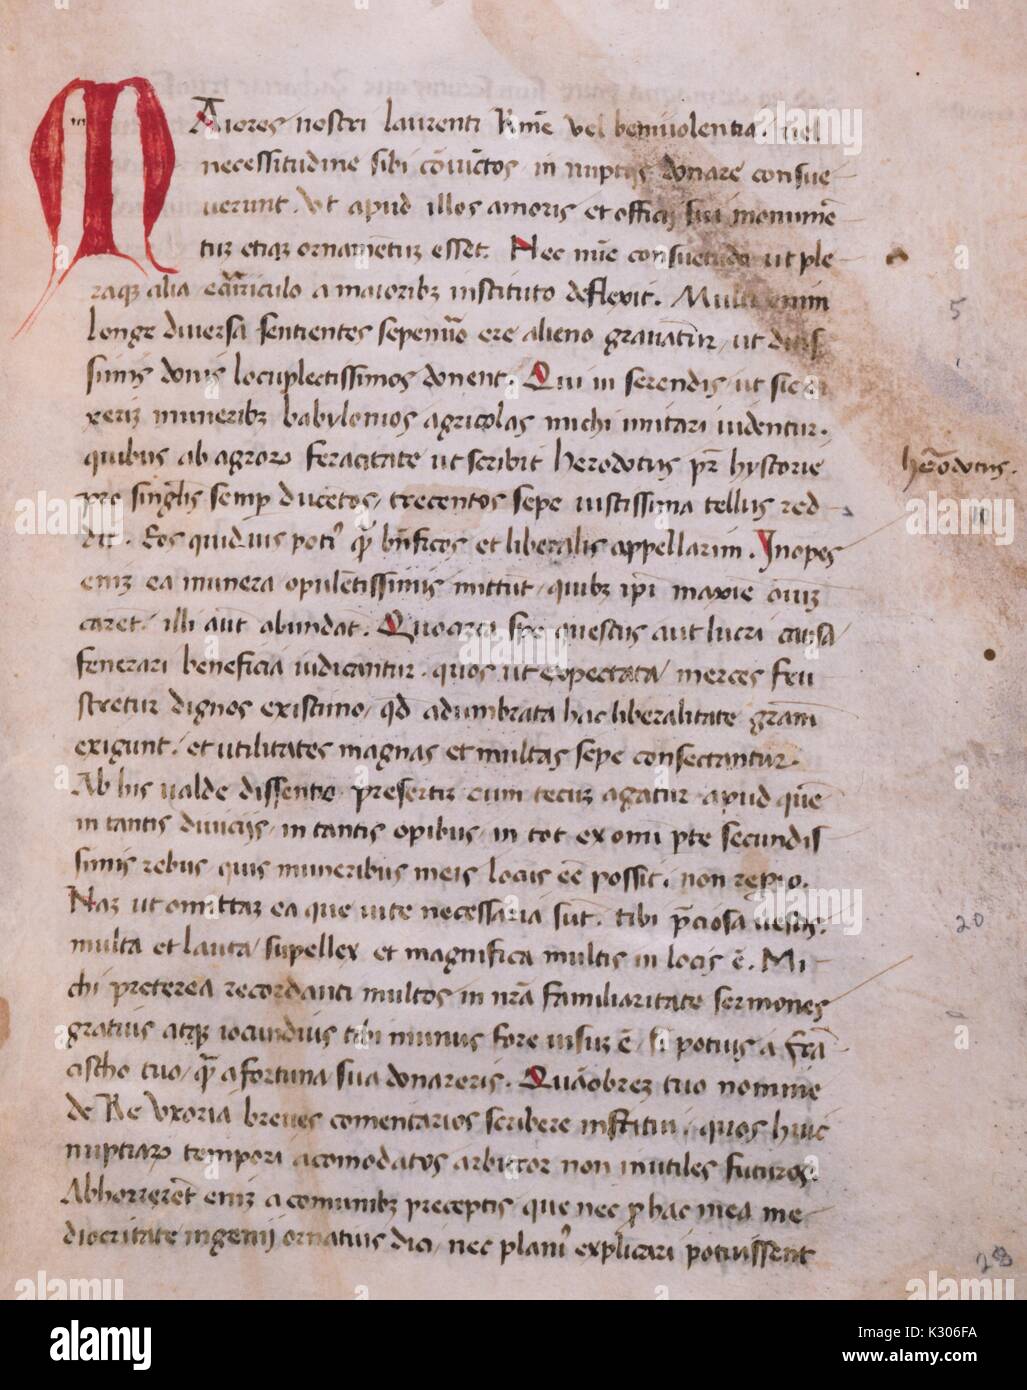 MAiores nostri laurenti Kr̄me vel benivolentia. vel
necessitudine sibi cōiūctos in nuptijs donare consue-
verunt. Vt apud illos amoris et officij sui monumē
tuȝ etiaqȝ ornamētuȝ esset. Nec mīe consuetudo ut ple
raqȝ alia curriculo a maioribȝ instituto deflexit. Multi enim
longe diversa sentientes sepenūo ere alieno gravātur, ut ditis
simis donis locuplectissimos donent. Qui in ferendis ut sic di
xeriȝ muneribȝ babylonios agricolas michi imitari videntur.
quibus ab agroꝝ feracitate ut scribit herodotus pr̄ hystorie
herodotus.
pro singlīs semp ducētos, trecentos sepe iustissima tellus red
dit. Eos quidvis poti' qꝫ bn̄ficos et liberalis appellarim. Inopes
eniȝ ea munera opulētissimis mittūt, quibȝ ipi maxīe oīuȝ
carēt, illi aūt abundāt. Quocirca spe questus aut lucri causa
fenerari beneficia iudicantur. quos ut expectata, merces fru
stretur dignos existimo, qd adumbrata hac liberalitate grām
exigunt, et utilitates magnas et multas sepe consectantur.
Ab his valde dissentio presertiȝ cum tecuȝ agatur apud quē
in tantis divicijs, in tantis opibus, in tot ex omī pte secundis
simis rebus quis muneribus meis locis eē possit, non repio.
Naȝ ut omittaȝ ea que vite necessaria sūt. tibi pciosa vestis,
multa et lauta, supellex et magnifica multis in locis ē. Mi-
chi preterea recordanti multos in nrā familiaritate sermones
gratius atqȝ iocundius tibi munus fore visuȝ ē, si potius a frā
cischo tuo, qꝫ a fortuna sua donareris. Quāobreȝ tuo nomine
de Re Vxoria breves comentarios scribere institui, quos huic
nuptiaꝝ tempori acomodatos arbitror non inutiles futuros.
Abhorrerēt eniȝ a comunibȝ preceptis que nec p hac mea me-
diocritate ingenij ornatius dici, nec plani' explicari potuissent
5
20
alamy stock photo
K306FA
www.alamy.com